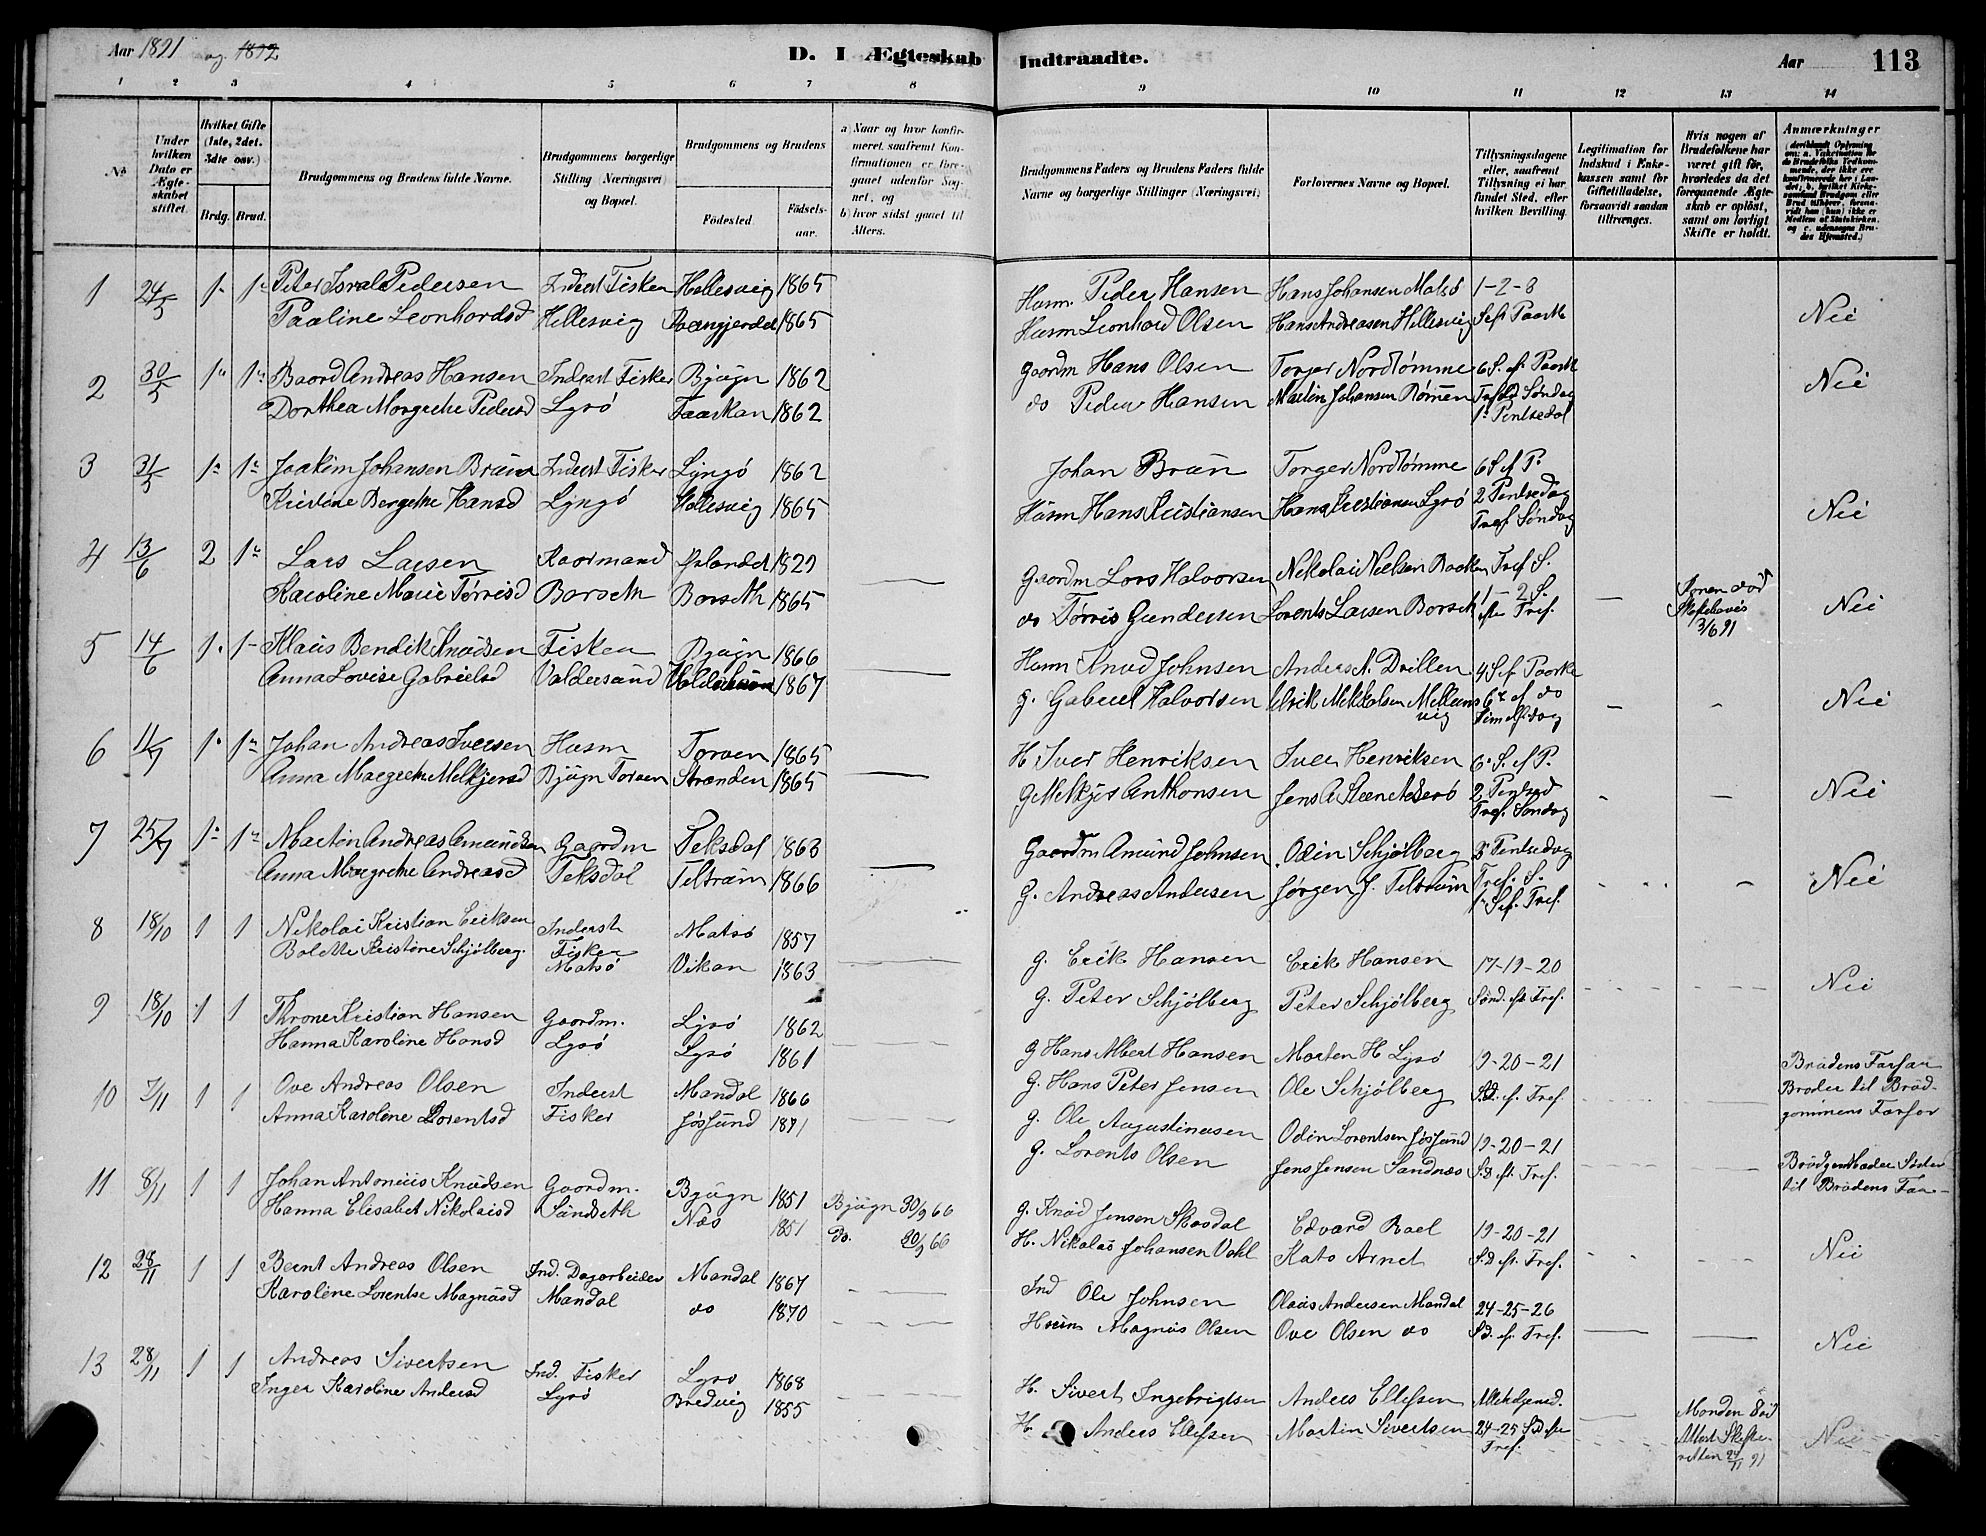 Aar 1891 og 1892
D. I Ægteskab Indtraadte.
Aar 113
1 2 3 4 5 6 7 8 9 10 11 12 13 14
No
Under hvilken Dato er Ægteskabet stiftet.
Hvilket Gifte (1ste, 2det, 3die osv.)
Brdg. Brud.
Brudgommens og Brudens fulde Navne.
Brudgommens borgerlige Stilling (Næringsvei) og Bopæl.
Brudgommens og Brudens
Fødested. Fødselsaar.
a) Naar og hvor konfirmeret, saafremt Konfirmationen er foregaaet udenfor Sognet, og
b) hvor sidst gaaet til Alters.
Brudgommens Faders og Brudens Faders fulde Navne og borgerlige Stillinger (Næringsvei)
Forlovernes Navne og Bopæl.
Tillysningsdagene eller, saafremt Tillysning ei har fundet Sted, efter hvilken Bevilling.
Legitimation for Indskud i Enkekassen samt for Giftetilladelse, forsaavidt saadan tiltrænges.
Hvis nogen af Brudefolkene har været gift før, hvorledes da det foregaaende Ægteskab er opløst, samt om lovligt Skifte er holdt.
Anmærkninger
1 24/5 1· 1· Peter Israel Pedersen Inderst Fisker Hellesvig 1865 Husm. Peder Hansen Hans Johansen Malsö 1-2-3
Pauline Leonhardsd Hellesvig 1865 Husm Leonhard Olsen Hans Andreasen Hellesvig S ef Paaske Nei
2 30/5 1" 1" Baard Andreas Hansen Inderst Fisker Bjugn 1862 Gaardm Hans Olsen Torger Nordtømme 6 S. ef. Paaske
Dorthea Margrethe Pedersd Lysö 1862 do Peder Hansen Martin Johansen Römmen Tref S Søndag Nei
1· Pentsedal
3 31/5 1" 1" Joakim Johansen Bruun Inderst Fisker Lyngö 1862 Johan Brun Torger Nordtømme 6 S ef P.
Kristine Bergethe Hansd Lyngö Hellesvig 1865 Husm Hans Kristiansen Hans Kristiansen Lysö 2 Pentsedag Nei
Tref Søndag
4 13/6 2 1" Lars Larsen Kaarmand 1829 Gaardm Lars Halvorsen Nikolai Nielsen Tref S.
Karoline Marie Tørrisd Borseth Borseth 1865 do Tørris Gundersen Lorents Larsen Borseth 1-2 S. efter Tref. Nei
3/6 91
5 14/6 1· 1- Klaus Bendik Knudsen Fisker Bjugn 1866 Husm Knud Johnsen Anders A. Drillen 4 S ef Paaske
Anna Lovise Gabrielsd Valdersund 1867 G. Gabriel Halvorsen Ulrik Mikkalsen 6te ef do Nei
6 11/7 1· 1" Johan Andreas Iversen Husm Tarven 1865 H Iver Henriksen Iver Henriksen 6· S. ef P.
Anna Margrethe Melkjersd Bjugn Tarven Stranden 1865 G Melkjer Anthonsen 2 Pentsed Nei
Tref. Søndag
7 25/7 1· 1" Martin Andreas Amundsen Gaardm Teksdal 1863 Gaardm Amund Johnsen Odin Schjölberg 2 Pentsedag
Anna Margrethe Andreasd Teksdal Teltrum 1866 G. Andreas Andersen Jørgen J. Teltrum Tref. S. Nei
1· S ef. Tref.
8 18/10 1 1 Nikolai Kristian Eriksen Inderst Matsö 1857 G. Erik Hansen Erik Hansen 17-19-20
Bolette Kristine Schjölberg. Fisker Matsö Vikan 1863 G. Peter Schjölberg Peter Schjölberg Sønd. eft. Tref. Nei
9 18/10 1 1 Throne Kristian Hansen Gaardm. Lysö 1862 G Hans Albert Hansen Morten H Lysö 19-20-21
Hanna Karoline Hansd Lysö Lysö 1861 G. Hans Peter Jensen Ole Schjölberg S.D. ef. Tref.
Brudens Farfar Broder til Brudgommens Farfar
10 7/11 1 1 Ove Andreas Olsen Inderst Mandal 1866 G. Ole Augustinusen Odin Lorentsen Jøssund 19-20-21
Anna Karoline Lorentsd Fisker Jøssund 1871 G. Lorents Olsen Jens Jensen Sandnæs S.D eft. Tref.
Brudgoms Moder Søster til Brudens Far-
11 8/11 1 1 Johan Antonius Knudsen Gaardm. Bjugn 1851 Bjugn 30/9 66 G. Knud Jensen Skosdal Edvard Rael 19-20-21
Hanna Elisabet Nikolaisd Sundseth Næs 1851 Do. 30/9 66 H. Nikolai Johansen Vahl Kato Arnet S.D. eft. Tref. Nei
12 28/11 1 1 Bernt Andreas Olsen Ind. Dagarbeider Mandal 1867 Ind Ole Johnsen Olaus Andersen Mandal 24-25-26
Karoline Lorentse Magnusd Mandal do 1870 Husm Magnus Olsen Ove Olsen do S.d. ef. Tref. Nei
13 28/11 1 1 Andreas Sivertsen Ind. Fisker Lysö 1868 H. Sivert Ingebrigtsen Anders Ellefsen Allehelgensd.
Inger Karoline Andersd Lysö Bredvig 1855 H. Anders Ellefsen Martin Sivertsen 24-25 S.D efter Tref. Nei
Manden Död